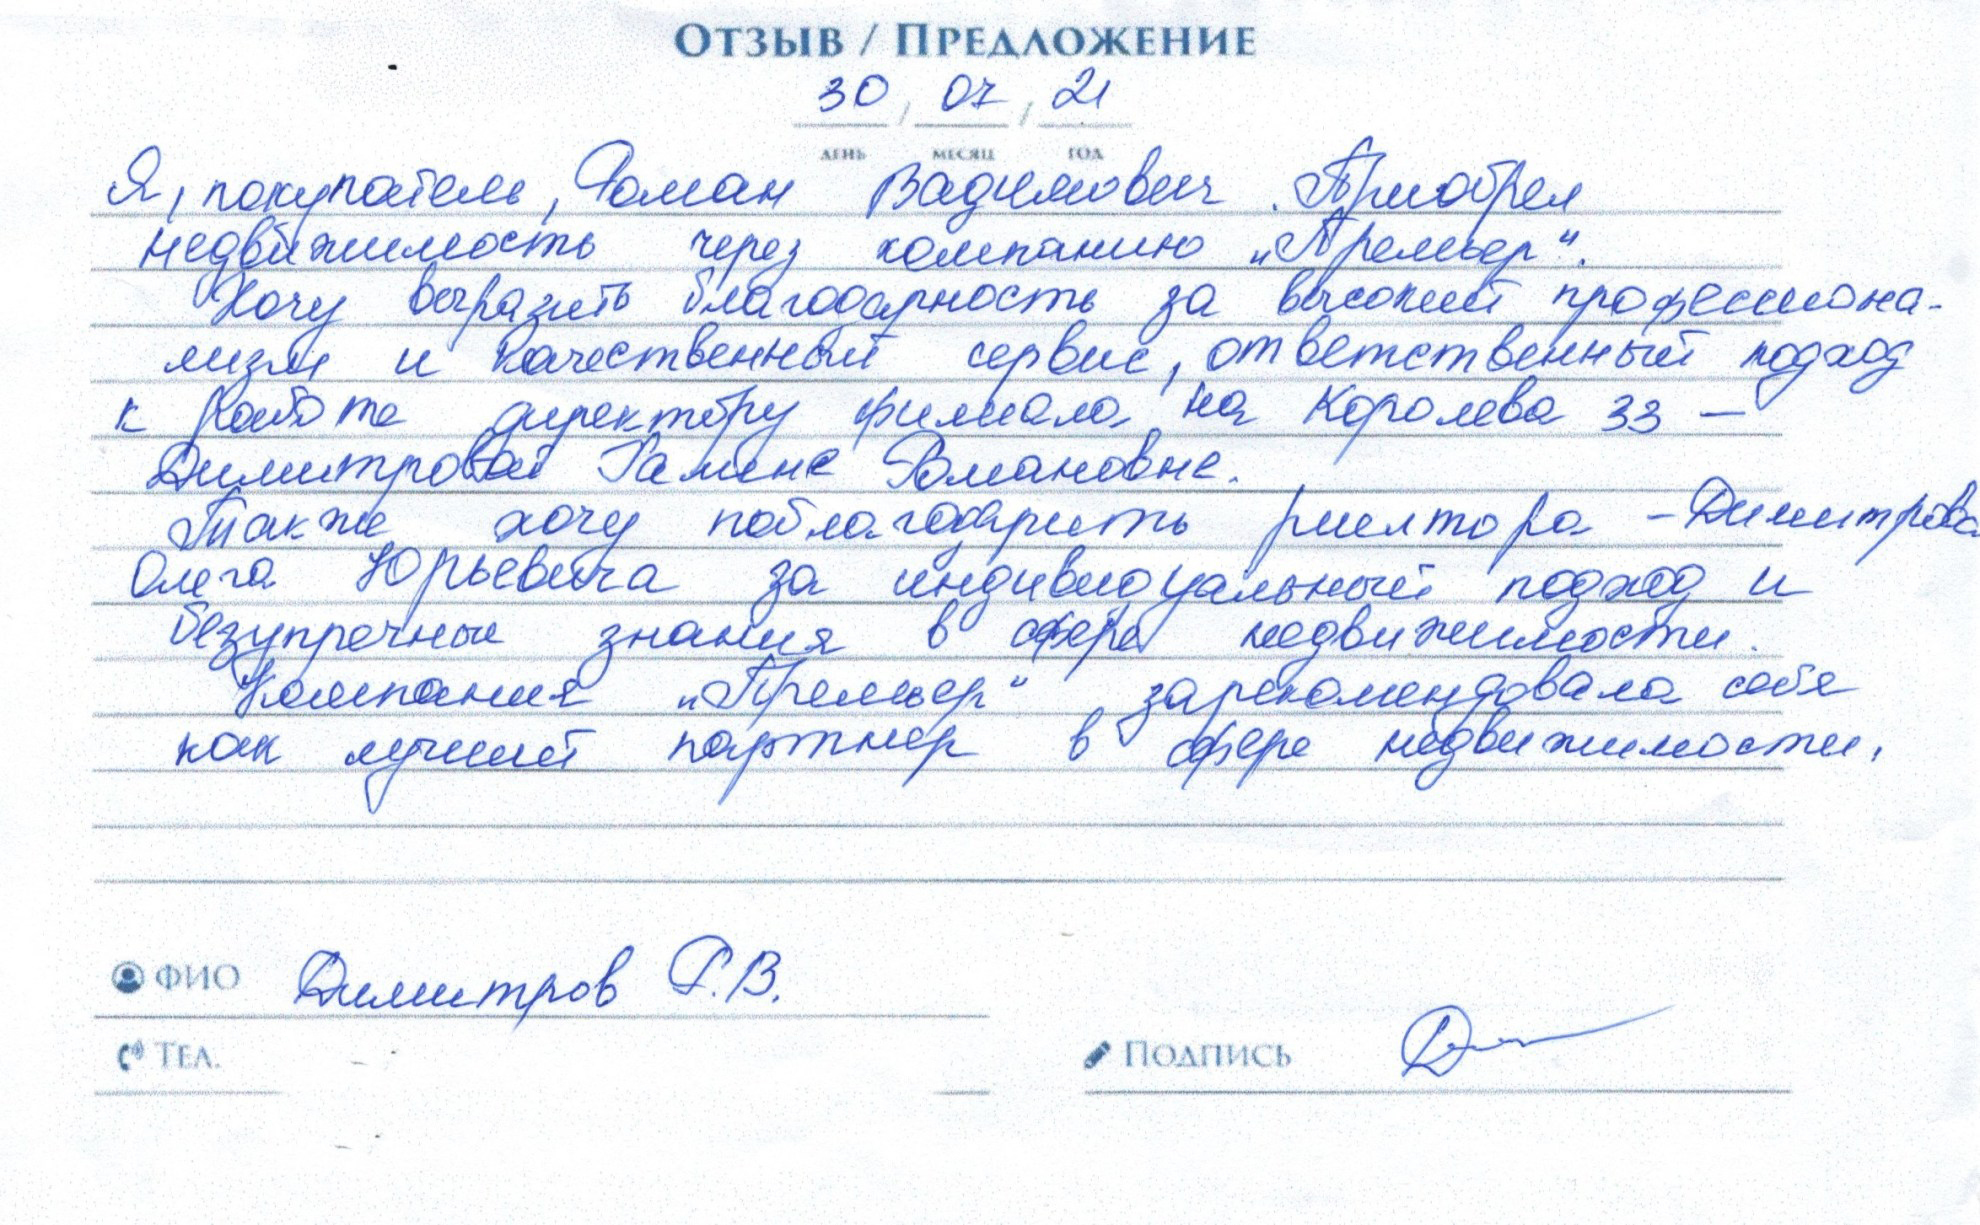 ОТЗЫВ / ПРЕДЛОЖЕНИЕ
30 / 07 / 21
ДЕНЬ МЕСЯЦ ГОД
Я, покупатель, Роман Вадимович. Приобрел
недвижимость через компанию „Премьер“.
Хочу выразить благодарность за высокий профессиона-
лизм и качественный сервис, ответственный подход
к работе директору филиала на Королева 33 –
Димитровой Галине Романовне.
Также хочу поблагодарить риелтора – Димитрова
Олега Юрьевича за индивидуальный подход и
безупречные знания в сфере недвижимости.
Компания „Премьер“ зарекомендовала себя
как лучший партнер в сфере недвижимости.
ФИО Димитров Р.В.
ТЕЛ.
ПОДПИСЬ